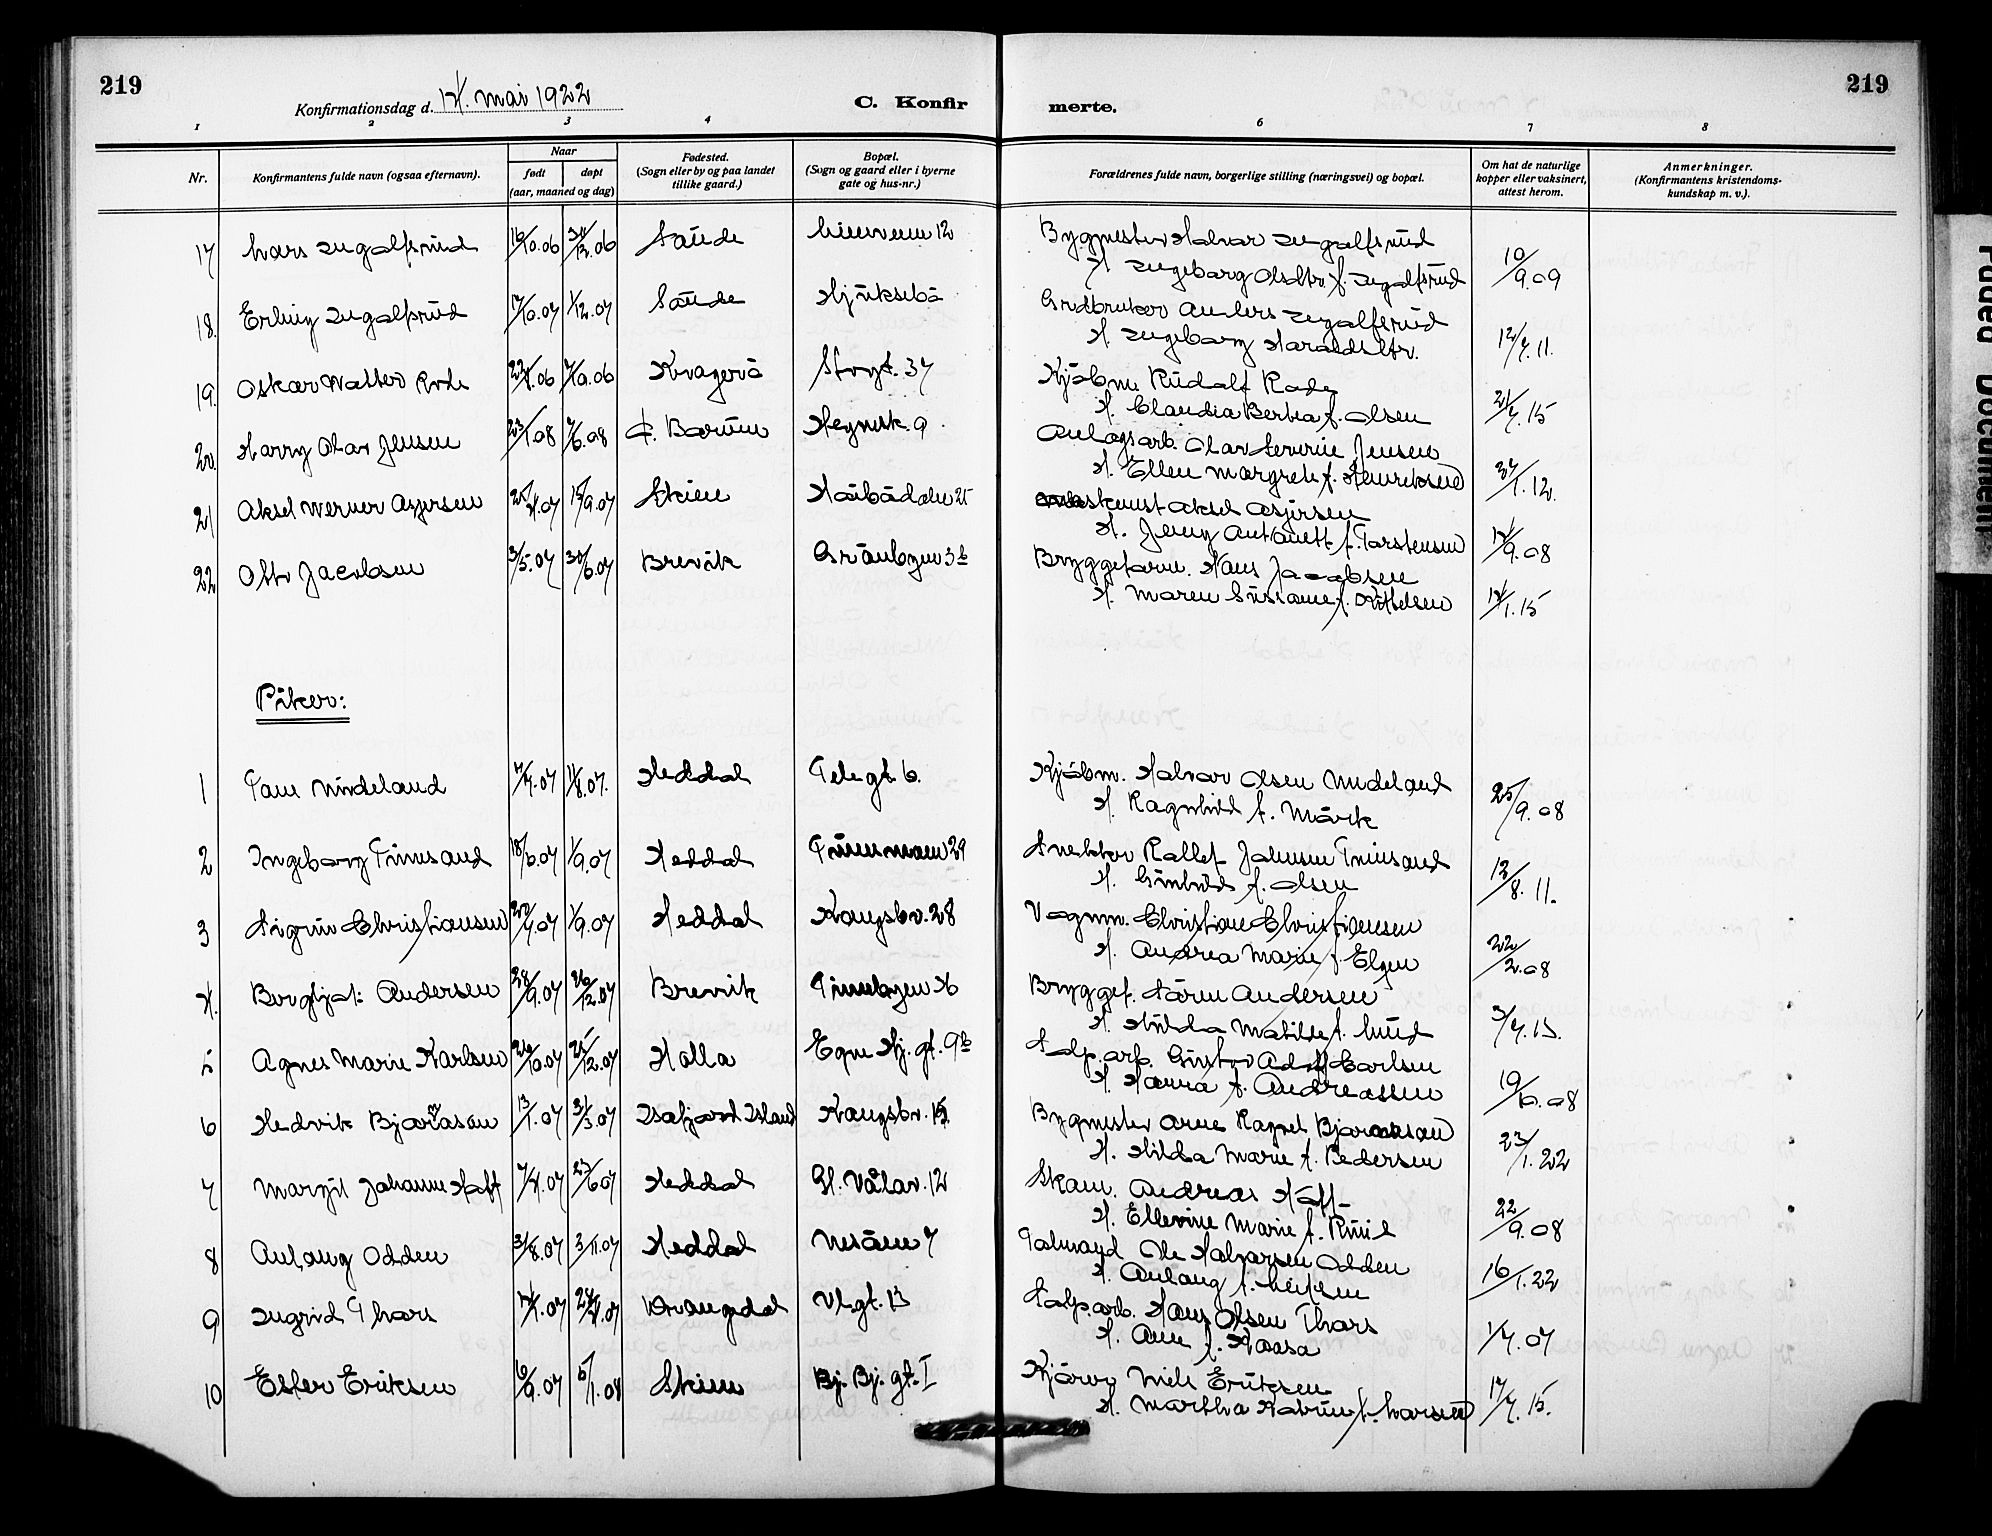 219
Konfirmationsdag d. 14. mai 1922
C. Konfir
merte.
219
1 2 3 4 5 6 7 8
Nr.
Konfirmantens fulde navn (ogsaa efternavn).
Naar
født
døpt
(aar, maaned og dag)
Fødested.
(Sogn eller by og paa landet
tillike gaard.)
Bopæl.
(Sogn og gaard eller i byerne
gate og hus-nr.)
Forældrenes fulde navn, borgerlige stilling (næringsvei) og bopæl.
Om hat de naturlige
kopper eller vaksinert,
attest herom.
Anmerkninger.
(Konfirmantens kristendoms-
kundskap m. v.).
17 Lars Ingolfsrud 16/10.06 /12.06 Saude 12 Bygmester Halvor Ingolfsrud
H. Ingeborg Olsdtr. f. Ingolfsrud 10/9.09
18. Erling Ingolfsrud 17/10.07 1/12.07 Saude Hjuksebö Grdbruker Anders Ingolfsrud
H. Ingeborg Haraldsdtr. 12/7.11.
19. Oskar Walter Rode 23/8.06 7/10.06 Kragerö Storgt. 37 Kjöbm. Rudolf Rode
H. Claudia Bertea f. Olsen 21/7.15
20. Harry Olav Jensen 23/1.08 7/6.08 Ö. Bærum 9. Anlagsarb. Olav Severin Jensen
H. Ellen Margrete f. Henriksen /1.12.
21 Aksel Werner Asjersen 25/4.07 15/9.07 Skien 25 kunst Aksel Asjersen
H. Jenny Antonett f. Torstensen 14/9.08
22 Otto Jacobsen 3/5.07 30/6.07 Brevik Grönbyen 3b Bryggeform. Hans Jacobsen
H. Maren Susanne f. Kittelsen 14/1.15
Piker:
1 Tone Nudeland 7/7.07 11/8.07. Heddal Telegt. 6. Kjöbm. Halvor Olsen Nudeland
H. Ragnhild f. Mörk 25/9.08
2 Ingeborg Tinnsand 18/6.07 1/9.07 Heddal 29 Snekker Rollef Johnsen Tinnsand
H. Gunhild f. Olsen 12/8.11.
3 Sigrun Christiansen 22/7.07 1/9.07 Heddal Kongsbv. 28 Vognm. Christian Christiansen
H. Andrea Marie f. Elgen 22/2.08
4. Borghjat: Andersen 28/9.07 26/12.07 Brevik Tinnebyen 46 Bryggef. Sören Andersen
H. Hilda Matilde f. Lund 3/7.13.
5 Agnes Marie Karlsen 26/10.07 25/12.07 Holla 9b Salp.arb. Gustav Adolf Carlsen
H. Hanna f. Andreassen 19/10.08
6 Hedvik Bjarnason 13/1.07 31/3.07 Isafjord Island Kongsbv. Bygmester Arne Ragnel Bjarnason
H. Hilda Marie f. Pedersen 23/1.22
7 Margit Johanne Hoff 7/4.07 23/6.07 Heddal Gl. Vålav. 12 Skom. Andreas Hoff
H. Ellevine Marie f. Ruud 22/9.08
8 Aulaug Odden 31/8.07 3/11.07 Heddal Nesöen 7 Ole Halvorsen Odden
H. Aulaug f. 16/1.22
9 Ingrid Thors 14/1.07 24/4.07 Drangedal Vlgt. 13 Salp.arb. Hans Olsen Thors
H. Anne f. Kaasa 1/7.07
10 Ester Eriksen 6/9.07 5/1.08 Skien Bj. Bj. gt. I Kjörer Nils Eriksen
H. Martha Katrine f. Larsen 17/7.15.
Faded Document